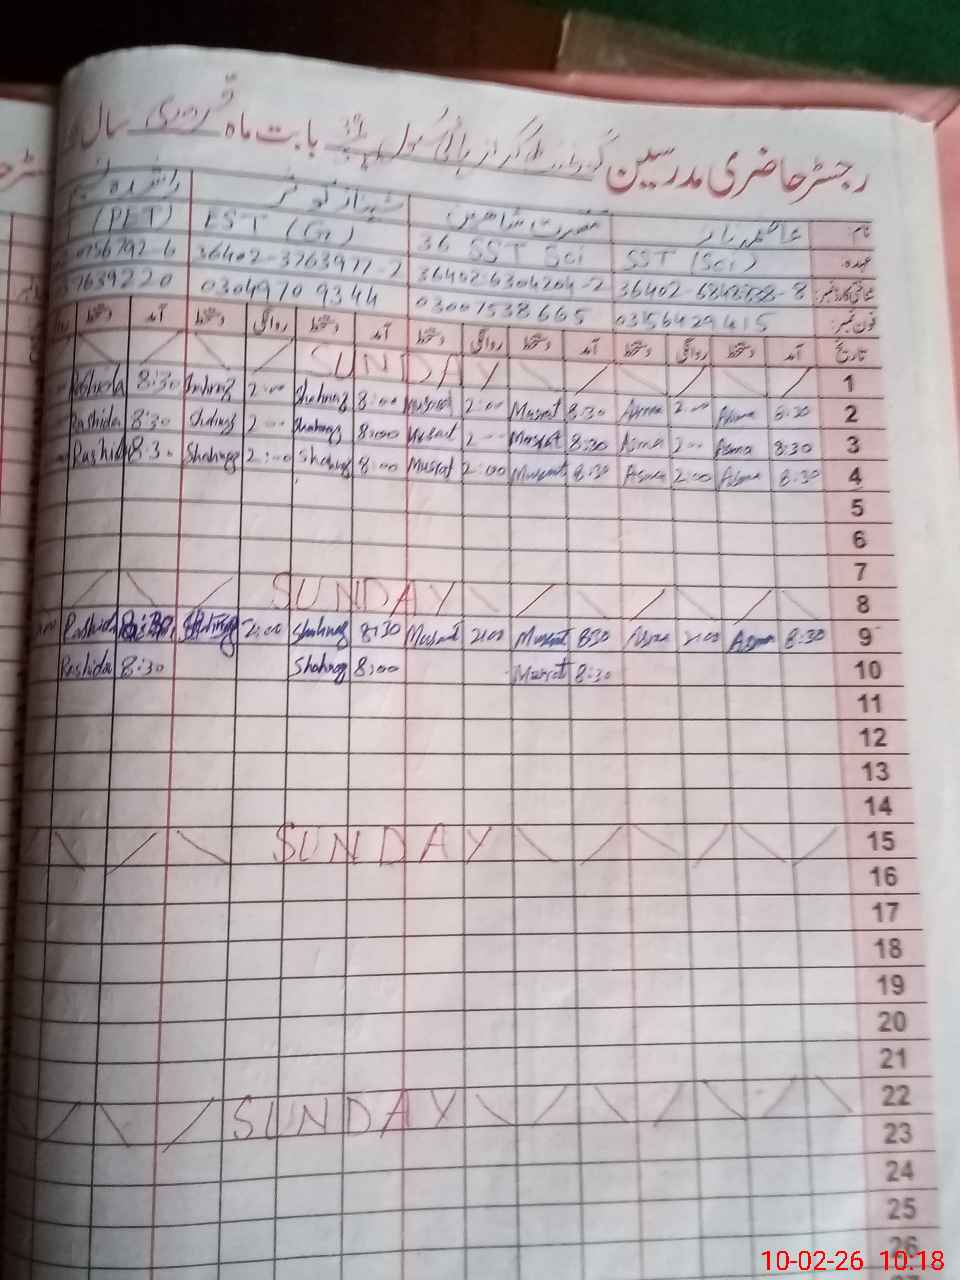 رجسٹر حاضری مدرسین گورنمنٹ گرلز ہائی سکول بابت ماہ فروری سال
نام
عہدہ SST (Sci) 36 SST Sci EST (Gr) (PET)
شناختی کارڈ نمبر 36402-6304204-2 36402-3763977-2
فون نمبر 03156429415 03001538665 0304970 9344 7639220
تاریخ آمد دستخط روانگی دستخط آمد دستخط روانگی دستخط آمد دستخط روانگی دستخط آمد دستخط
1 SUNDAY
2 8:30 Asma 2:00 Asma 8:30 Musrat 2:00 Musrat 8:00 Shahnaz 2:00 Shahnaz 8:30 Rashida
3 8:30 Asma 2:00 Asma 8:30 Musrat 2:00 Musrat 8:00 Shahnaz 2:00 Shahnaz 8:30 Rashida
4 8:30 Asma 2:00 Asma 8:30 Musrat 2:00 Musrat 8:00 Shahnaz 2:00 Shahnaz 8:30 Rashida
5
6
7
8 SUNDAY
9 8:30 Asma 2:00 Asma 8:30 Musrat 2:00 Musrat 8:30 Shahnaz 2:00 Shahnaz 8:30 Rashida
10 8:30 Musrat 8:00 Shahnaz 8:30 Rashida
11
12
13
14
15 SUNDAY
16
17
18
19
20
21
22 SUNDAY
23
24
25
26
10-02-26 10:18